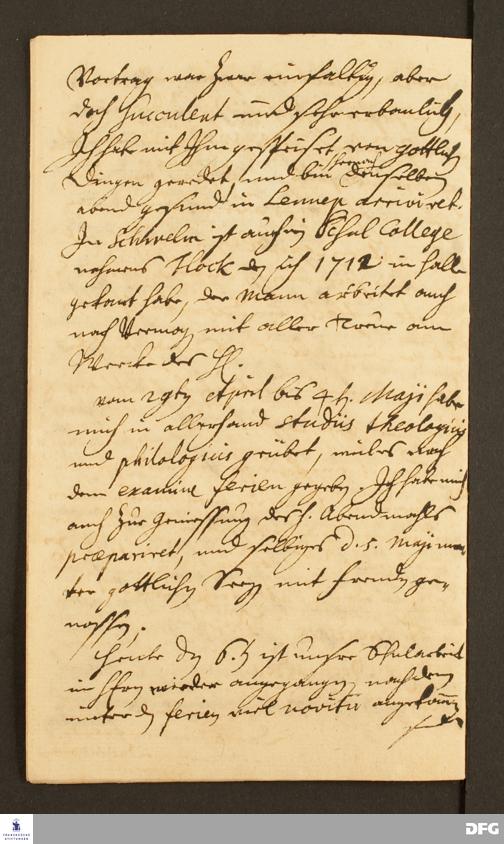 Vortrag war zwar einfaltig, aber
doch succulent und sehr erbaulich,
Ich habe mit Ihm gespeiset, von gottlichen
Dingen geredet, und bin hernach denselben
abend gesund in Lennep arriviret.
In Schwelm ist auch ein Schul College
nahmens Hock den ich 1712 in Halle
gekant habe, der Mann arbeitet auch
nach Vermog mit aller Treue am
Wercke des H.
vom 29ten April bis 4 t. Maji habe
mich in allerhand studiis theologicis
und philologicis geübet, weil es nach
dem examine ferien gegeben. Ich habe mich
auch zur Geniessung des h. Abendmahls
præpariret, und selbiges d. 5. Maji un-
ter gottlichen Seegen mit freuden ge-
nossen.
Heute den 6. ist unsre Schularbeit
im Hern wieder angegangen, nachdem
unter den ferien viel novitii angekommen
FRANCKESCHE STIFTUNGEN
DFG